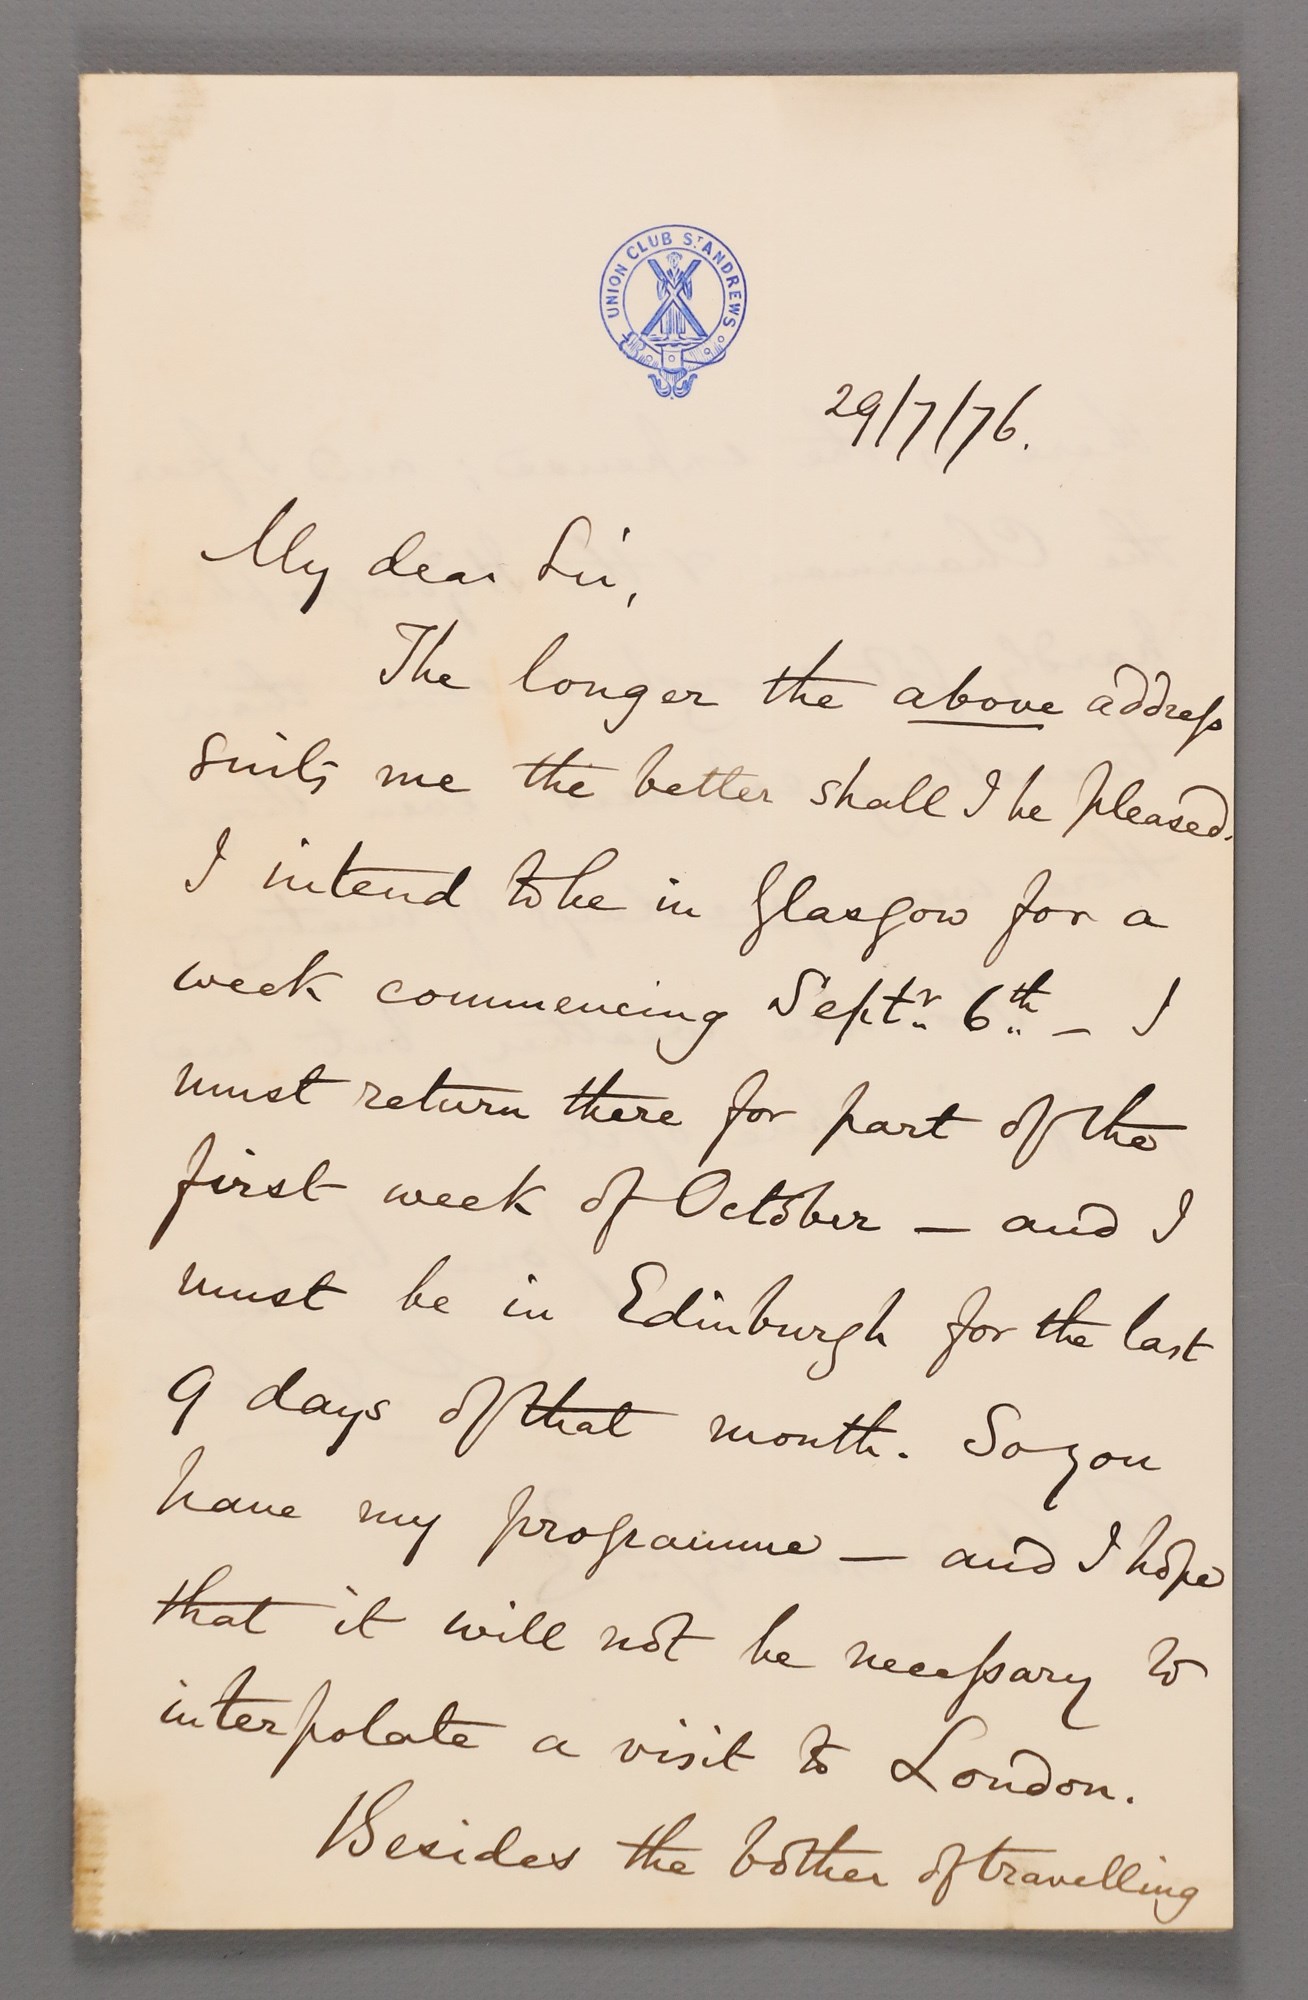 UNION CLUB ST ANDREWS
29/7/76.
My dear Sir,
The longer the above address
suits me the better shall I be pleased.
I intend to be in Glasgow for a
week commencing Septr. 6th – I
must return there for part of the
first week of October – and I
must be in Edinburgh for the last
9 days of that month. So you
have my programme – and I hope
that it will not be necessary to
interpolate a visit to London.
Besides the bother of travelling